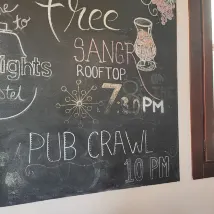 to Free
SANGR
ROOFTOP
lights 7:30PM
stel
PUB CRAWL
10 PM